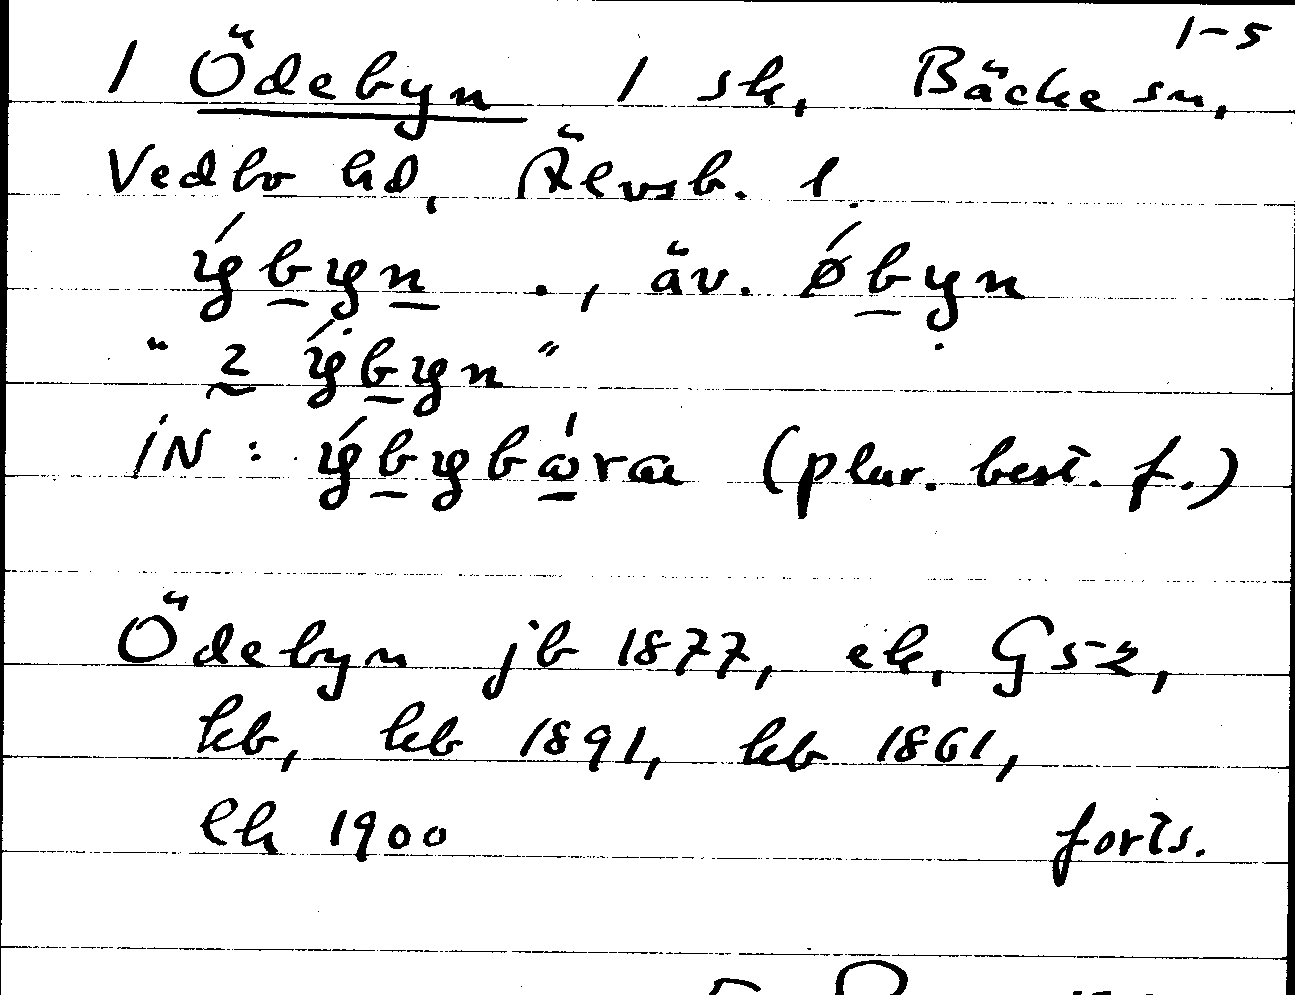 1-5
1 Ödebyn 1 sk, Bäcke sn,
Vedbo hd, Älvsb. l.
ýbyn ., äv. ǿbyn
" 2 ýbyn "
iN: ýbybåra (plur. best. f.)
Ödebyn jb 1877, ek, G52,
kb, kb 1891, kb 1861,
lk 1900 forts.